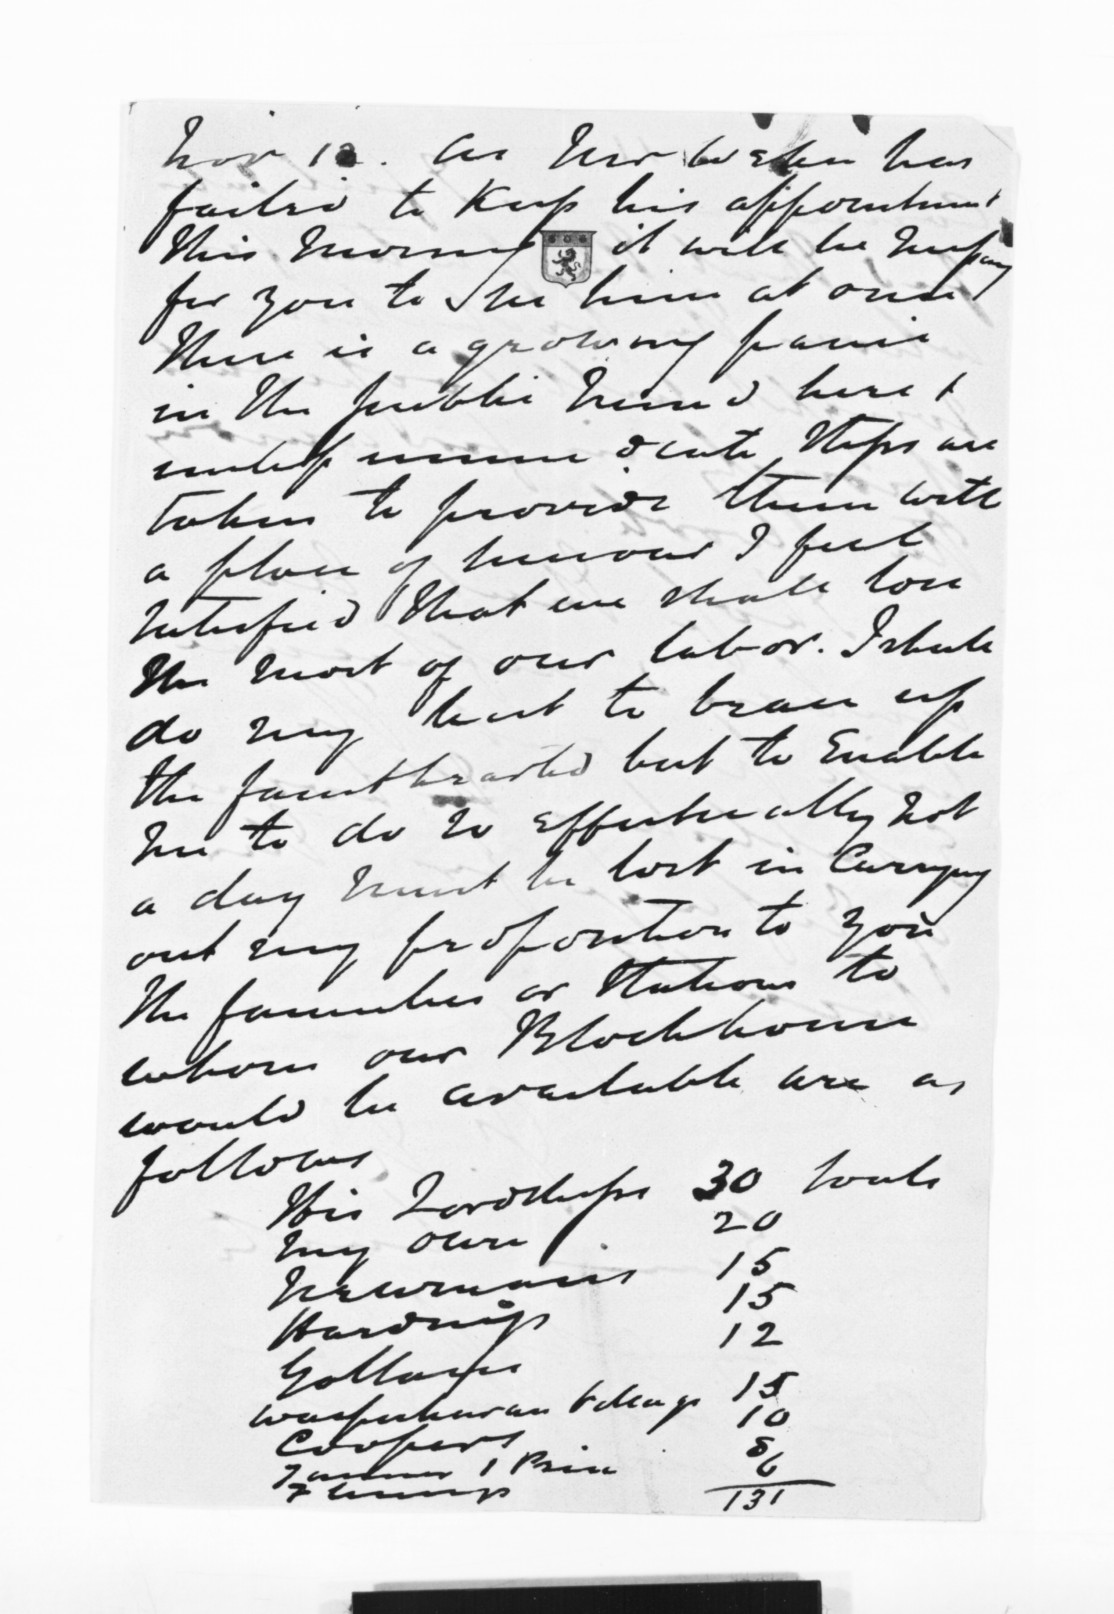 Nov 12. As Mr Weber has
failed to keep his appointment
this morning it will be necessary
for you to see him at once
There is a growing panic
in the public mind here &
unless immediate steps are
taken to provide them with
a place of I feel
satisfied that we shall lose
the most of our labor. I shall
do my best to brace up
the fainthearted but to enable
me to do so effectually not
a day must be lost in carrying
out my proposition to you
The families or stations to
whom our Blockhouse
would be available are as
follows
His Lordships 30 souls
My own 20
Newmans 15
Hardings 15
Gollans 12
Waipukurau village 15
Coopers 10
Tanner & Price 8
Flemings 6
131